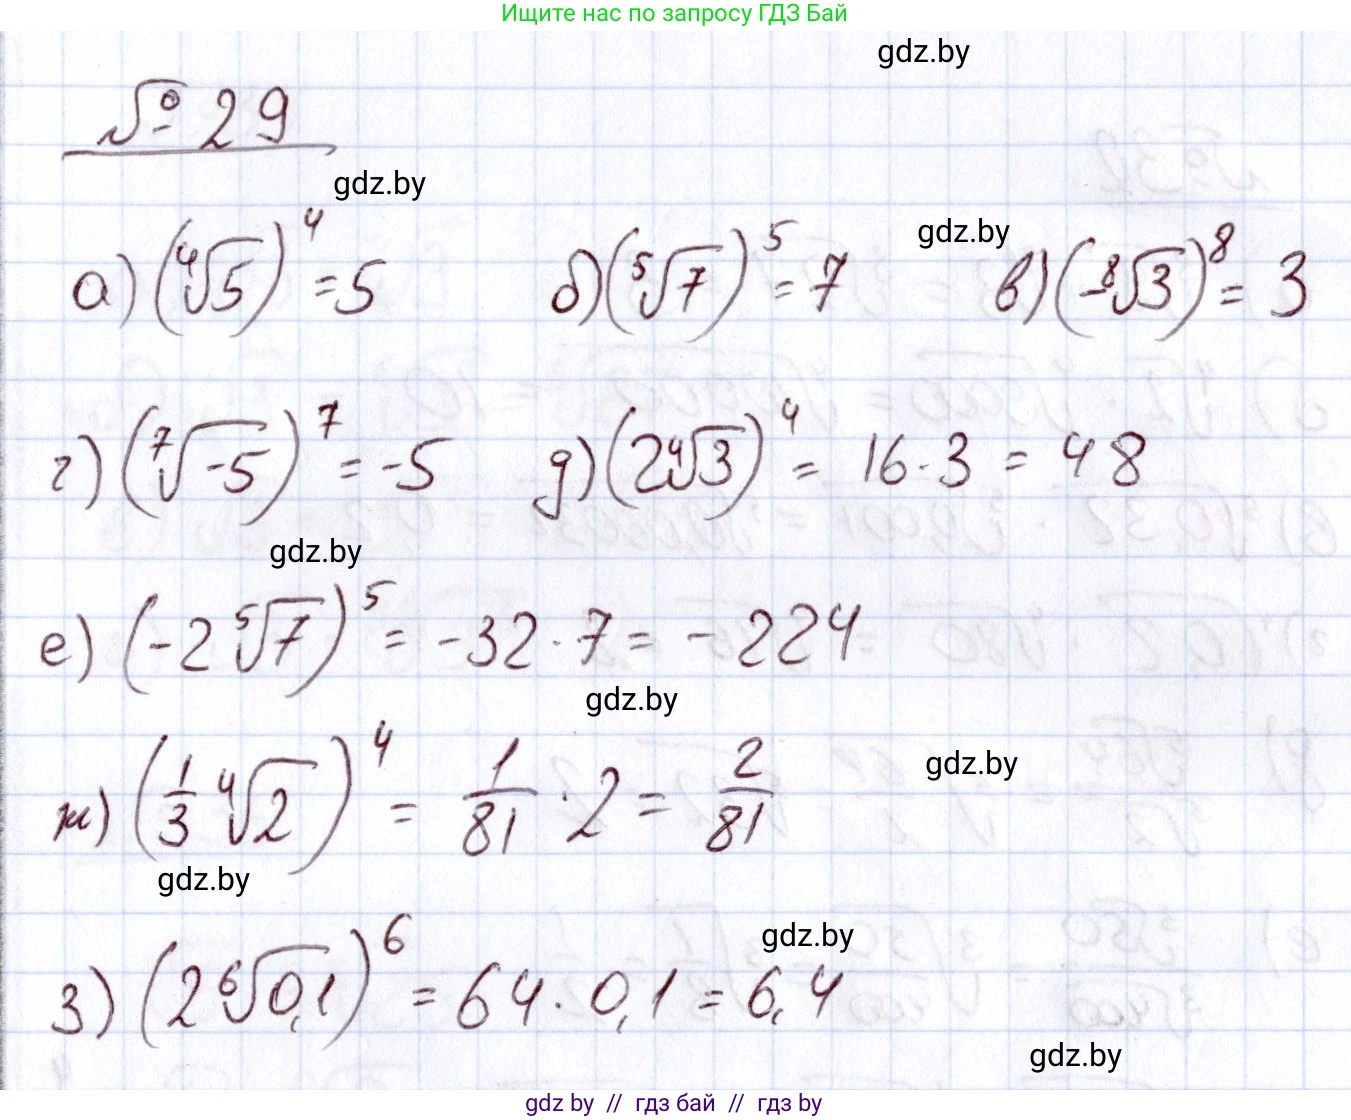 Ищите нас по запросу ГДЗ Бай
gdz.by
№ 29
gdz.by
gdz.by
а) (⁴√5)⁴ = 5 б) (⁵√7)⁵ = 7 в) (-⁸√3)⁸ = 3
г) (⁷√-5)⁷ = -5 д) (2⁴√3)⁴ = 16·3 = 48
gdz.by
е) (-2 ⁵√7)⁵ = -32·7 = -224
gdz.by
gdz.by
ж) (1/3 ⁴√2)⁴ = 1/81 · 2 = 2/81
gdz.by
gdz.by
з) (2 ⁶√0,1)⁶ = 64·0,1 = 6,4
gdz.by
gdz by // гдз бай // гдз by